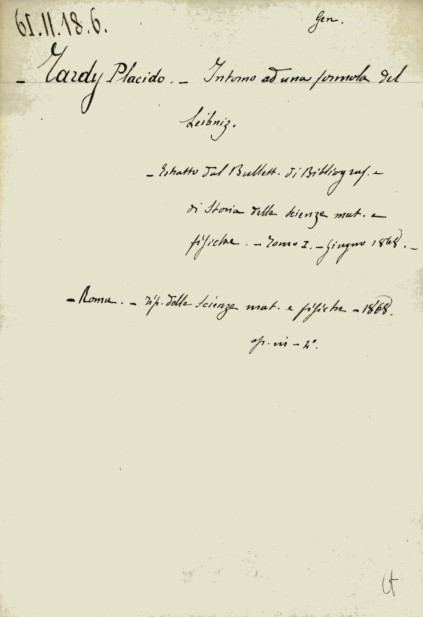 61.II.18.6.
Gen.
- Tardy Placido. - Intorno ad una formola del
Leibniz.
- Estratto dal Bullett. di Bibliograf. e
di Storia delle scienze mat. e
fisiche. - Tomo I. - Giugno 1868. -
- Roma. - Tip. delle Scienze mat. e fisiche - 1868.
op. in - 4°.